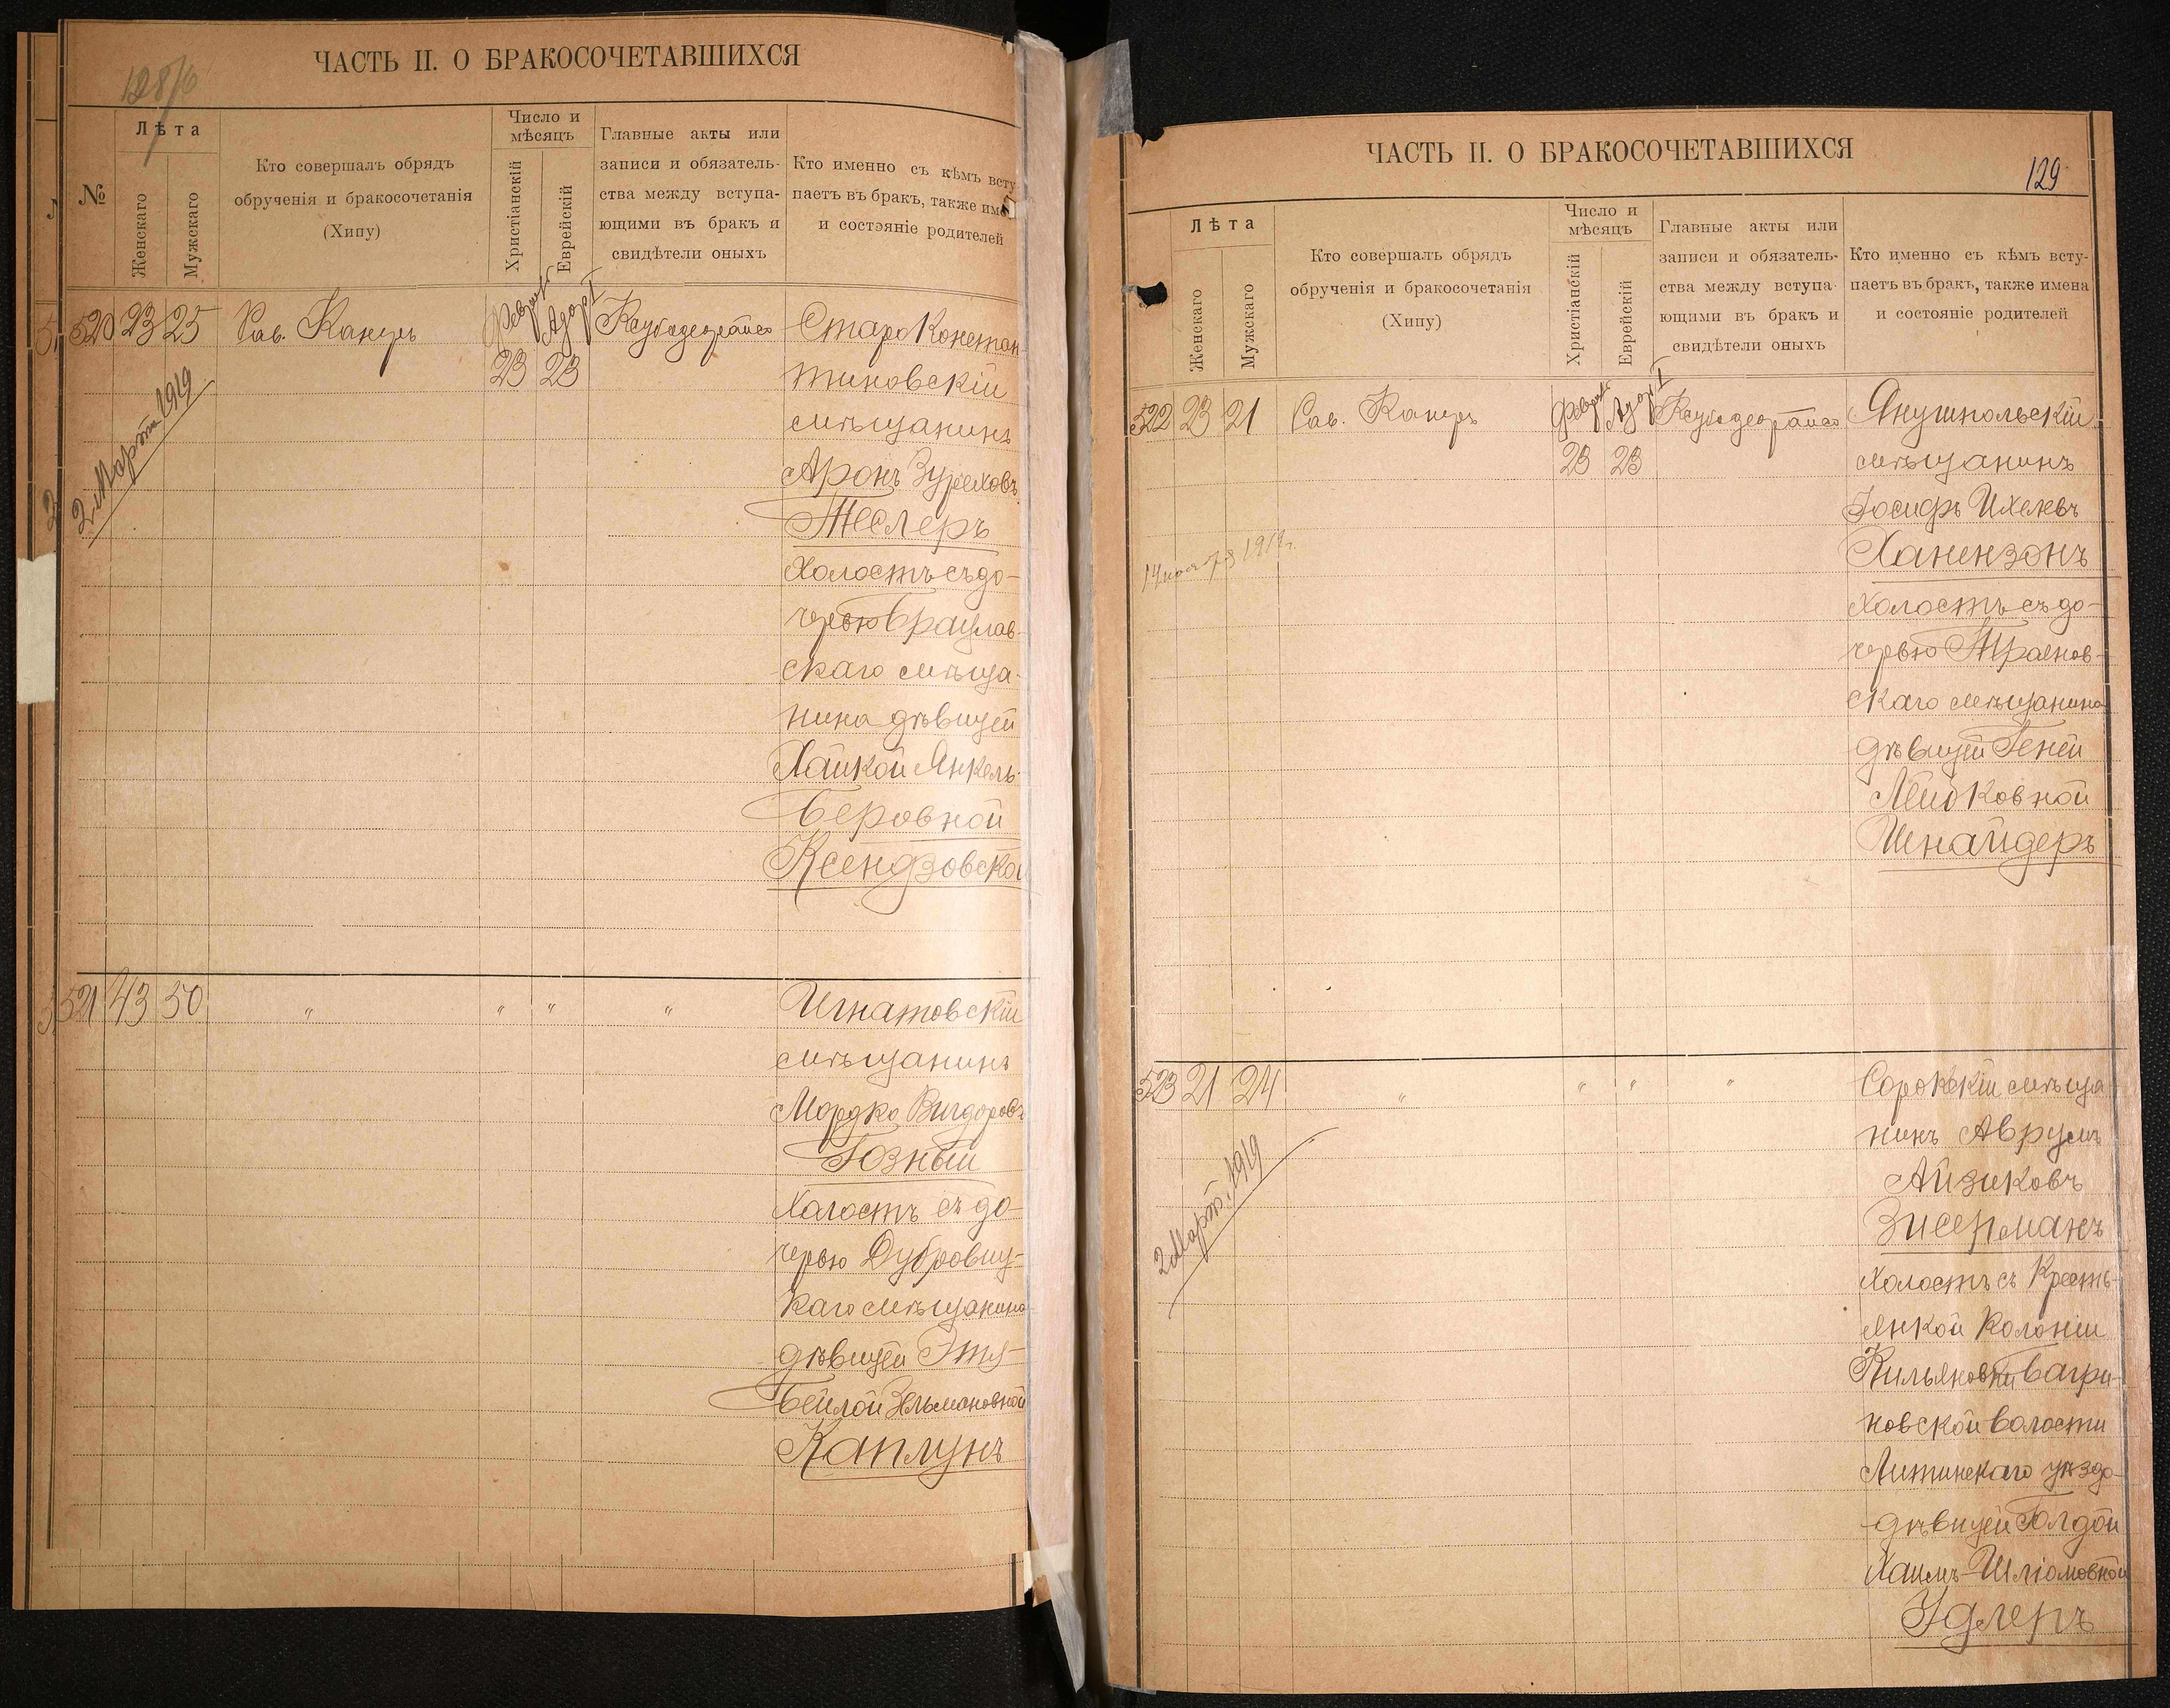 ЧАСТЬ II. О БРАКОСОЧЕТАВШИХСЯ
128/6
№
Лѣта
Женскаго
Мужскаго
Кто совершалъ обрядъ
обрученія и бракосочетанія
(Хипу)
Число и
мѣсяцъ
Христіанскій
Еврейскій
Главные акты или
записи и обязатель-
ства между вступа-
ющими въ бракъ и
свидѣтели оныхъ
Кто именно съ кѣмъ всту
паетъ въ бракъ, также име
и состояніе родителей
520 23 25 Рав. Канеръ Феврал 23 Адор I 23
Староконстан-
тиновскій
мѣщанинъ
Аронъ
Теслеръ
Холостъ съ до-
черью Брацлав-
скаго мѣща-
нина дѣвицей
Хайкой Янкель-
Беровной
Ксендзовской
2 Март. 1919
521 43 50 " " " "
Игнатовскій
мѣщанинъ
Мордко Вигдоровъ
Гозный
Холостъ съ до-
черью Дубровиц-
каго мѣщанина
дѣвицей Этя-
Бейлой Зельмановной
Каплунъ
ЧАСТЬ II. О БРАКОСОЧЕТАВШИХСЯ
129
Лѣта
Женскаго
Мужскаго
Кто совершалъ обрядъ
обрученія и бракосочетанія
(Хипу)
Число и
мѣсяцъ
Христіанскій
Еврейскій
Главные акты или
записи и обязатель-
ства между вступа-
ющими въ бракъ и
свидѣтели оныхъ
Кто именно съ кѣмъ всту-
паетъ въ бракъ, также имена
и состояніе родителей
522 23 21 Рав. Канеръ Феврал 23 Адор I 23
Янушпольскій
мѣщанинъ
Іосифъ Ихелевъ
Ханензонъ
Холостъ съ до-
черью Трояновскаго
скаго мѣщанина
дѣвицей Геней
Лейбковной
Шнайдеръ
523 21 24 " " " "
Сорокскій мѣща
нинъ Аврумъ
Айзиковъ
Зисерманъ
Холостъ съ Кресть-
янкой Колоніи
Кильяновки Багри-
новской волости
Литинскаго уѣзда
дѣвицей Голдой
Хаимъ-Шліомовной
Удлеръ
2 Март. 1919